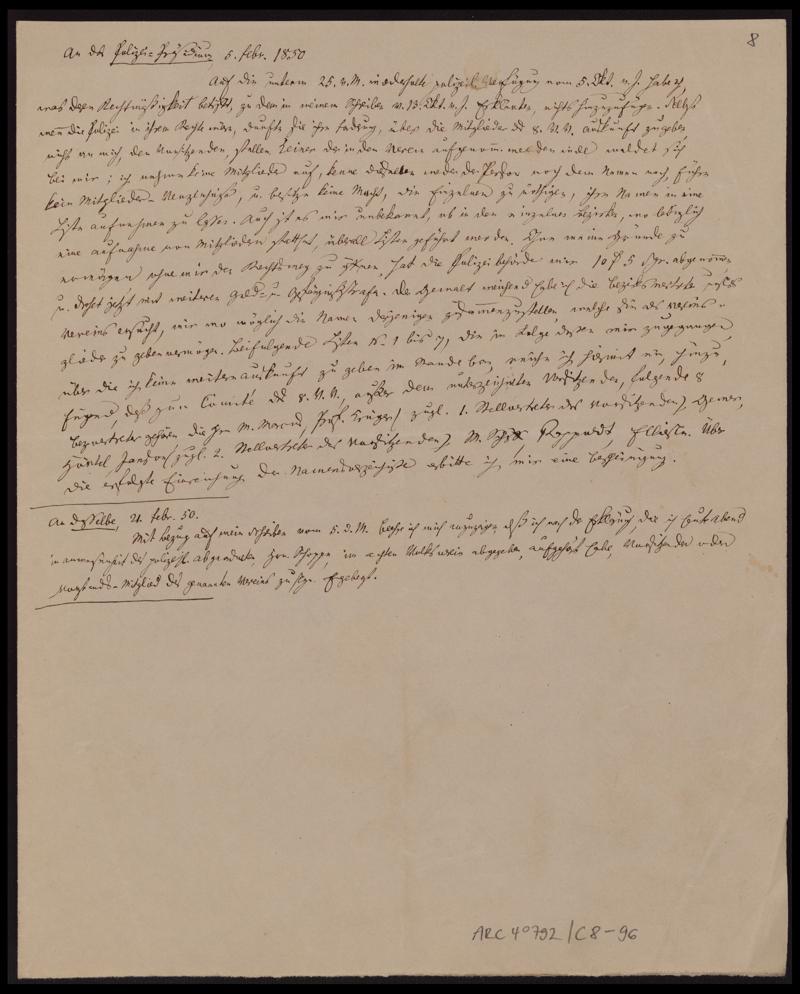 8
An das Polizei-Präsidium 6. Febr. 1850
Auf die unterm 25. v. M. wiederholte polizeil. Verfügung vom 5. Okt. v. J. habe ich,
was deren Rechtmäßigkeit betrifft, zu dem in meinem Schreiben v. 13. Okt. v. J. Erklärten, nichts hinzuzufügen. Selbst
wenn die Polizei in ihrem Rechte wäre, durfte sie ihre Forderung, über die Mitglieder des 8. V. V. Auskunft zu geben,
nicht an mich, den Vorsitzenden, stellen. Keiner der in den Verein aufgenommen werden will meldet sich
bei mir; ich nehme keine Mitglieder auf, kenne dieselben weder der Person noch dem Namen nach, führe
kein Mitglieder-Verzeichniß, u. besitze keine Macht, die Einzelnen zu nöthigen, ihre Namen in eine
Liste aufnehmen zu lassen. Auch ist es mir unbekannt, ob in den einzelnen Bezirken, wo lediglich
eine Aufnahme von Mitgliedern statthat, überall Listen geführt werden. Ohne meine Gründe zu
erwägen ohne mir den Rechtsweg zu öffnen, hat die Polizeibehörde mir 10 5 Sgr. abgenommen
u. droht jetzt mit weiteren Geld- u. Gefängnißstrafen. Der Gewalt weichend habe ich die Bezirksvertreter des
Vereins ersucht, mir wo möglich die Namen derjenigen zusammenzustellen, welche sie als Vereins-
glieder zu geben vermögen. Beifolgende Listen N. 1 bis 7, die in Folge dessen mir zugegangen,
über die ich keine weitere Auskunft zu geben im Stande bin, reiche ich hiermit ein, hinzu-
fügend, daß zum Comité des 8. V. V., außer dem unterzeichneten Vorsitzenden, folgende 8
Bezvertreter gehören die Hrn M. Marcus, Prof. Krüger (zugl. 1. Stellvertreter des Vorsitzenden), Berner,
Härtel, Janson (zugl. 2. Stellvertreter des Vorsitzenden), M. Elliesen. Über
die erfolgte Einreichung der Namensverzeichnisse erbitte ich mir eine Bescheinigung.
An Dasselbe, 21. Febr. 50.
Mit Bezug auf mein Schreiben vom 6. d. M. beehre ich mich anzuzeigen, daß ich nach der Erklärung, die ich heut Abend
in Anwesenheit des polizeil. Abgeordneten, Hrn. Schoppe, im achten Volksverein abgegeben, aufgehört habe, Vorsitzender oder
Vorstands-Mitglied des genannten Vereins zu sein. Ergebenst.
ARC 4º 792 / C8-96